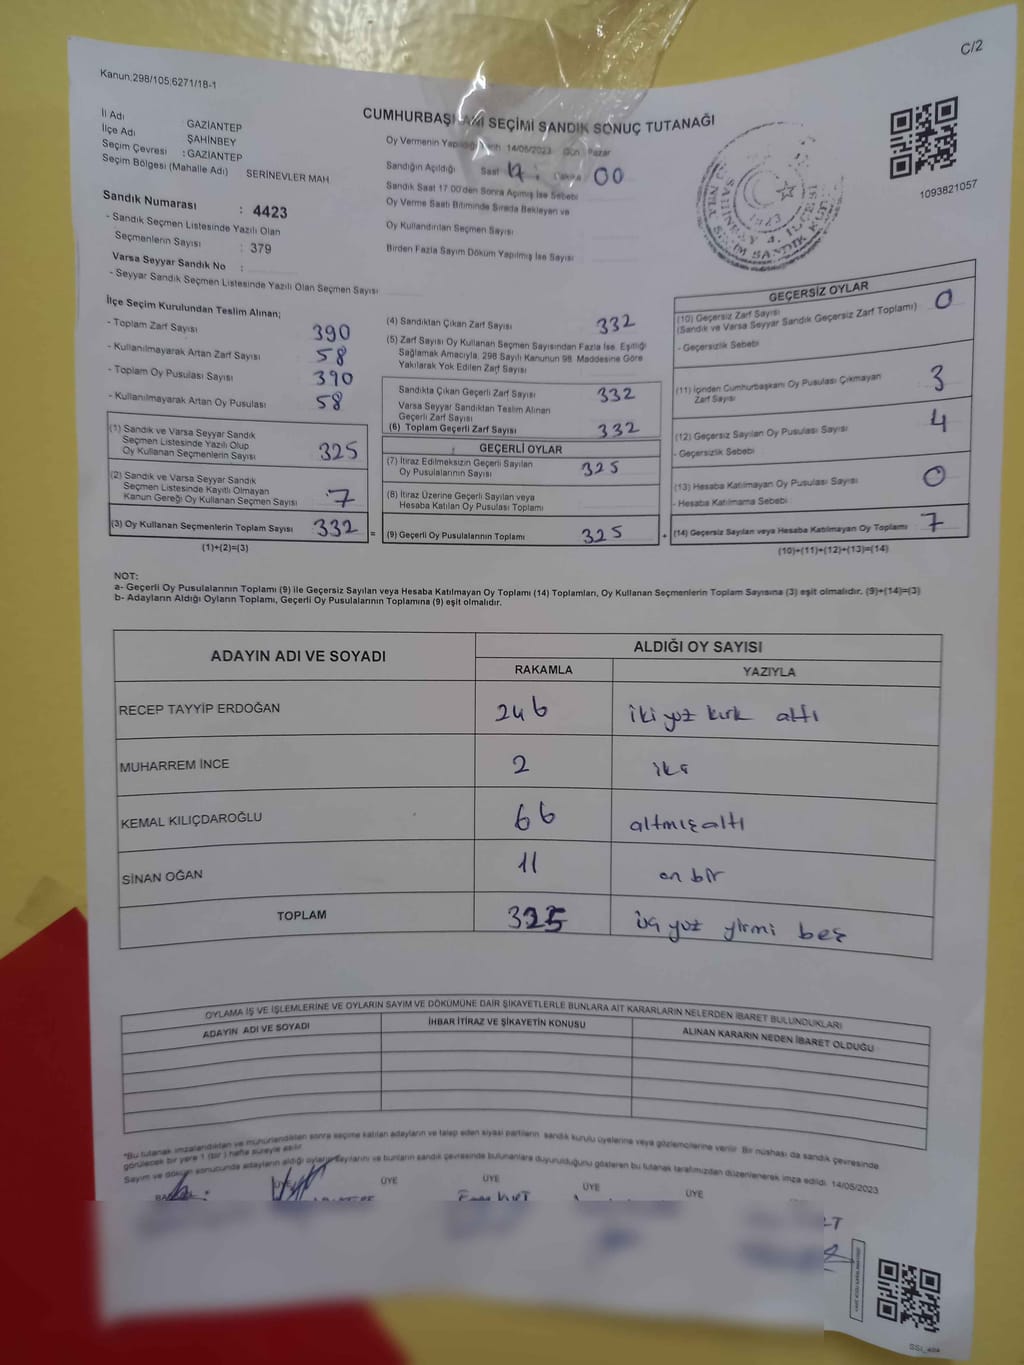 C/2
Kanun;298/105;6271/18-1
CUMHURBAŞKANI SEÇİMİ SANDIK SONUÇ TUTANAĞI
1093821057
İl Adı GAZİANTEP
İlçe Adı ŞAHİNBEY
Seçim Çevresi :GAZİANTEP
Seçim Bölgesi (Mahalle Adı) SERİNEVLER MAH
Sandık Numarası : 4423
- Sandık Seçmen Listesinde Yazılı Olan
Seçmenlerin Sayısı : 379
Varsa Seyyar Sandık No :
- Seyyar Sandık Seçmen Listesinde Yazılı Olan Seçmen Sayısı
Oy Vermenin Yapıldığı Tarih 14/05/2023 Gün Pazar
Sandığın Açıldığı Saat 17 Dakika 00
Sandık Saat 17.00'den Sonra Açımış İse Sebebi
Oy Verme Saati Bitiminde Sırada Bekleyen ve
Oy Kullandırılan Seçmen Sayısı
Birden Fazla Sayım Döküm Yapılmış İse Sayısı
İlçe Seçim Kurulundan Teslim Alınan;
- Toplam Zarf Sayısı 390
- Kullanılmayarak Artan Zarf Sayısı 58
- Toplam Oy Pusulası Sayısı 390
- Kullanılmayarak Artan Oy Pusulası 58
(1) Sandık ve Varsa Seyyar Sandık
Seçmen Listesinde Yazılı Olup
Oy Kullanan Seçmenlerin Sayısı 325
(2) Sandık ve Varsa Seyyar Sandık
Seçmen Listesinde Kayıtlı Olmayan
Kanun Gereği Oy Kullanan Seçmen Sayısı 7
(3) Oy Kullanan Seçmenlerin Toplam Sayısı 332 =
(1)+(2)=(3)
(4) Sandıktan Çıkan Zarf Sayısı 332
(5) Zarf Sayısı Oy Kullanan Seçmen Sayısından Fazla İse, Eşitliği
Sağlamak Amacıyla, 298 Sayılı Kanunun 98. Maddesine Göre
Yakılarak Yok Edilen Zarf Sayısı
Sandıkta Çıkan Geçerli Zarf Sayısı 332
Varsa Seyyar Sandıktan Teslim Alınan
Geçerli Zarf Sayısı
(6) Toplam Geçerli Zarf Sayısı 332
GEÇERLİ OYLAR
(7) İtiraz Edilmeksizin Geçerli Sayılan
Oy Pusulalarının Sayısı 325
(8) İtiraz Üzerine Geçerli Sayılan veya
Hesaba Katılan Oy Pusulası Toplamı
(9) Geçerli Oy Pusulalarının Toplamı 325 +
GEÇERSİZ OYLAR
(10) Geçersiz Zarf Sayısı 0
(Sandık ve Varsa Seyyar Sandık Geçersiz Zarf Toplamı)
- Geçersizlik Sebebi
(11) İçinden Cumhurbaşkanı Oy Pusulası Çıkmayan 3
Zarf Sayısı
(12) Geçersiz Sayılan Oy Pusulası Sayısı 4
- Geçersizlik Sebebi
(13) Hesaba Katılmayan Oy Pusulası Sayısı 0
- Hesaba Katılmama Sebebi
(14) Geçersiz Sayılan veya Hesaba Katılmayan Oy Toplamı 7
(10)+(11)+(12)+(13)=(14)
NOT:
a- Geçerli Oy Pusulalarının Toplamı (9) ile Geçersiz Sayılan veya Hesaba Katılmayan Oy Toplamı (14) Toplamları, Oy Kullanan Seçmenlerin Toplam Sayısına (3) eşit olmalıdır. (9)+(14)=(3)
b- Adayların Aldığı Oyların Toplamı, Geçerli Oy Pusulalarının Toplamına (9) eşit olmalıdır.
ADAYIN ADI VE SOYADI ALDIĞI OY SAYISI
RAKAMLA YAZIYLA
RECEP TAYYİP ERDOĞAN 246 iki yüz kırk altı
MUHARREM İNCE 2 iki
KEMAL KILIÇDAROĞLU 66 altmış altı
SİNAN OĞAN 11 on bir
TOPLAM 325 üç yüz yirmi beş
OYLAMA İŞ VE İŞLEMLERİNE VE OYLARIN SAYIM VE DÖKÜMÜNE DAİR ŞİKAYETLERLE BUNLARA AİT KARARLARIN NELERDEN İBARET BULUNDUKLARI
ADAYIN ADI VE SOYADI İHBAR İTİRAZ VE ŞİKAYETİN KONUSU ALINAN KARARIN NEDEN İBARET OLDUĞU
*Bu tutanak imzalandıktan ve mühürlendikten sonra seçime katılan adayların ve talep eden siyasi partilerin sandık kurulu üyelerine veya gözlemcilerine verilir. Bir nüshası da sandık çevresinde
görülecek bir yere 1 (bir) hafta süreyle asılır.
Sayım ve döküm sonucunda adayların aldığı oyların sayılarını ve bunların sandık çevresinde bulunanlara duyurulduğunu gösteren bu tutanak tarafımızdan düzenlenerek imza edildi. 14/05/2023
ÜYE ÜYE ÜYE ÜYE ÜYE